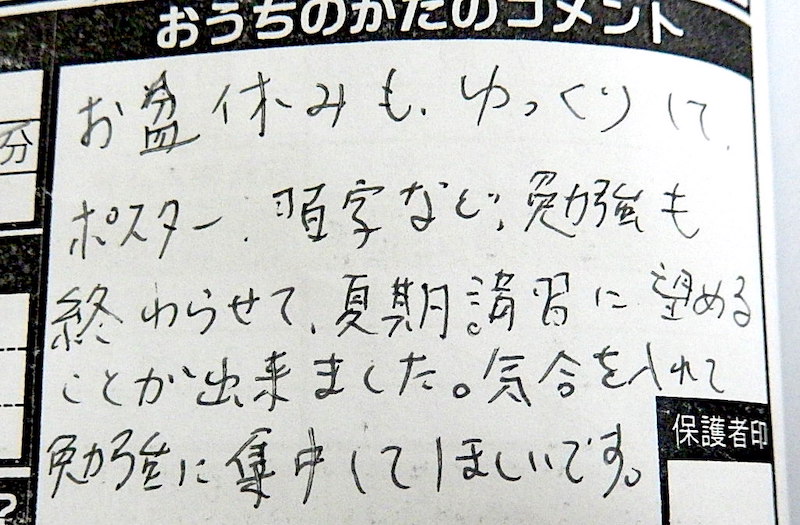 おうちのかたのコメント
お盆休みも、ゆっくりして、
ポスター、習字など、勉強も
終わらせて、夏期講習に望める
ことが出来ました。気合を入れて
勉強に集中してほしいです。
分
保護者印
?